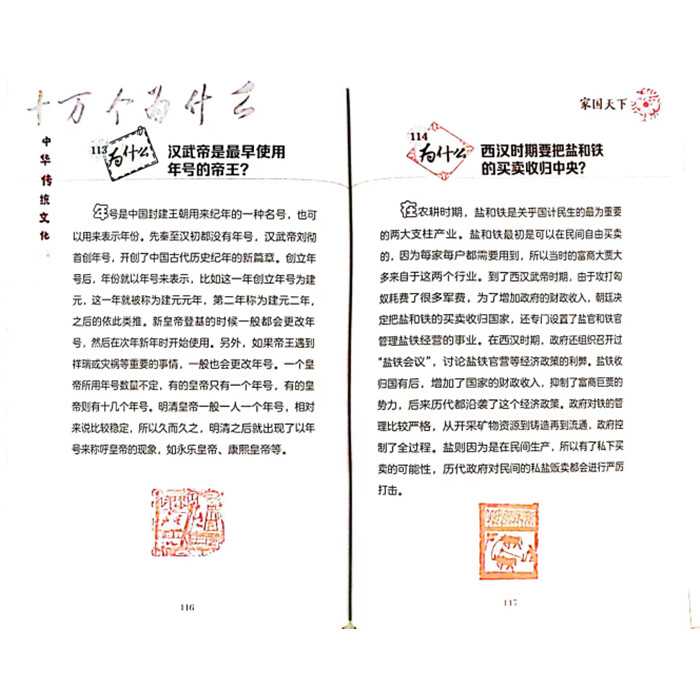 十万个为什么
中华传统文化
113
为什么
汉武帝是最早使用
年号的帝王？
年号是中国封建王朝用来纪年的一种名号，也可
以用来表示年份。先秦至汉初都没有年号，汉武帝刘彻
首创年号，开创了中国古代历史纪年的新篇章。创立年
号后，年份就以年号来表示，比如这一年创立年号为建
元，这一年就被称为建元元年，第二年称为建元二年，
之后的依此类推。新皇帝登基的时候一般都会更改年
号，然后在次年新年时开始使用。另外，如果帝王遇到
祥瑞或灾祸等重要的事情，一般也会更改年号。一个皇
帝所用年号数量不定，有的皇帝只有一个年号，有的皇
帝则有十几个年号。明清皇帝一般一人一个年号，相对
来说比较稳定，所以久而久之，明清之后就出现了以年
号来称呼皇帝的现象，如永乐皇帝、康熙皇帝等。
116
家国天下
114
为什么
西汉时期要把盐和铁
的买卖收归中央？
在农耕时期，盐和铁是关乎国计民生的最为重要
的两大支柱产业。盐和铁最初是可以在民间自由买卖
的，因为每家每户都需要用到，所以当时的富商大贾大
多来自于这两个行业。到了西汉武帝时期，由于攻打匈
奴耗费了很多军费，为了增加政府的财政收入，朝廷决
定把盐和铁的买卖收归国家，还专门设置了盐官和铁官
管理盐铁经营的事业。在西汉时期，政府还组织召开过
“盐铁会议”，讨论盐铁官营等经济政策的利弊。盐铁收
归国有后，增加了国家的财政收入，抑制了富商巨贾的
势力，后来历代都沿袭了这个经济政策。政府对铁的管
理比较严格，从开采矿物资源到铸造再到流通，政府控
制了全过程。盐则因为是在民间生产，所以有了私下买
卖的可能性，历代政府对民间的私盐贩卖都会进行严厉
打击。
117